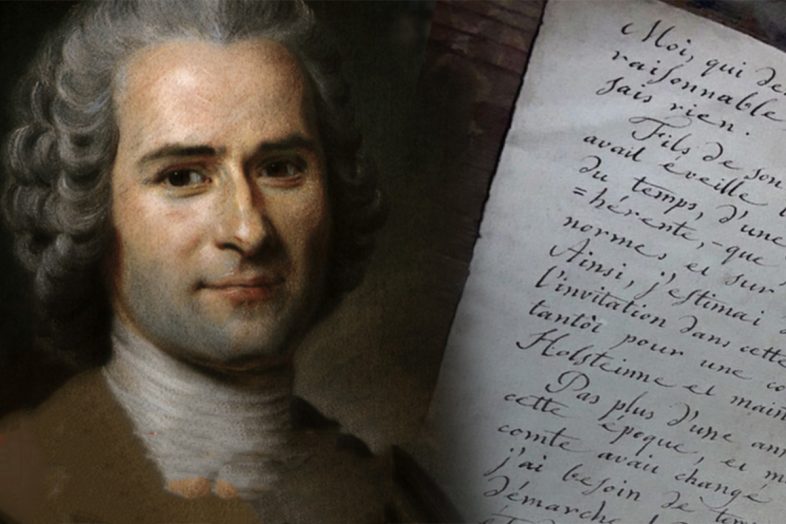 Moi, qui de
raisonnable
sais rien.
Fils de son
avait éveillé
du temps, d'une
=hérente, que
norme, et sur
Ainsi, j'estimai
l'invitation dans cette
tantôt pour une co
Holsteinne et main
Pas plus d'une ann
cette époque, et m
comte avait changé
j'ai besoin de te
démarche